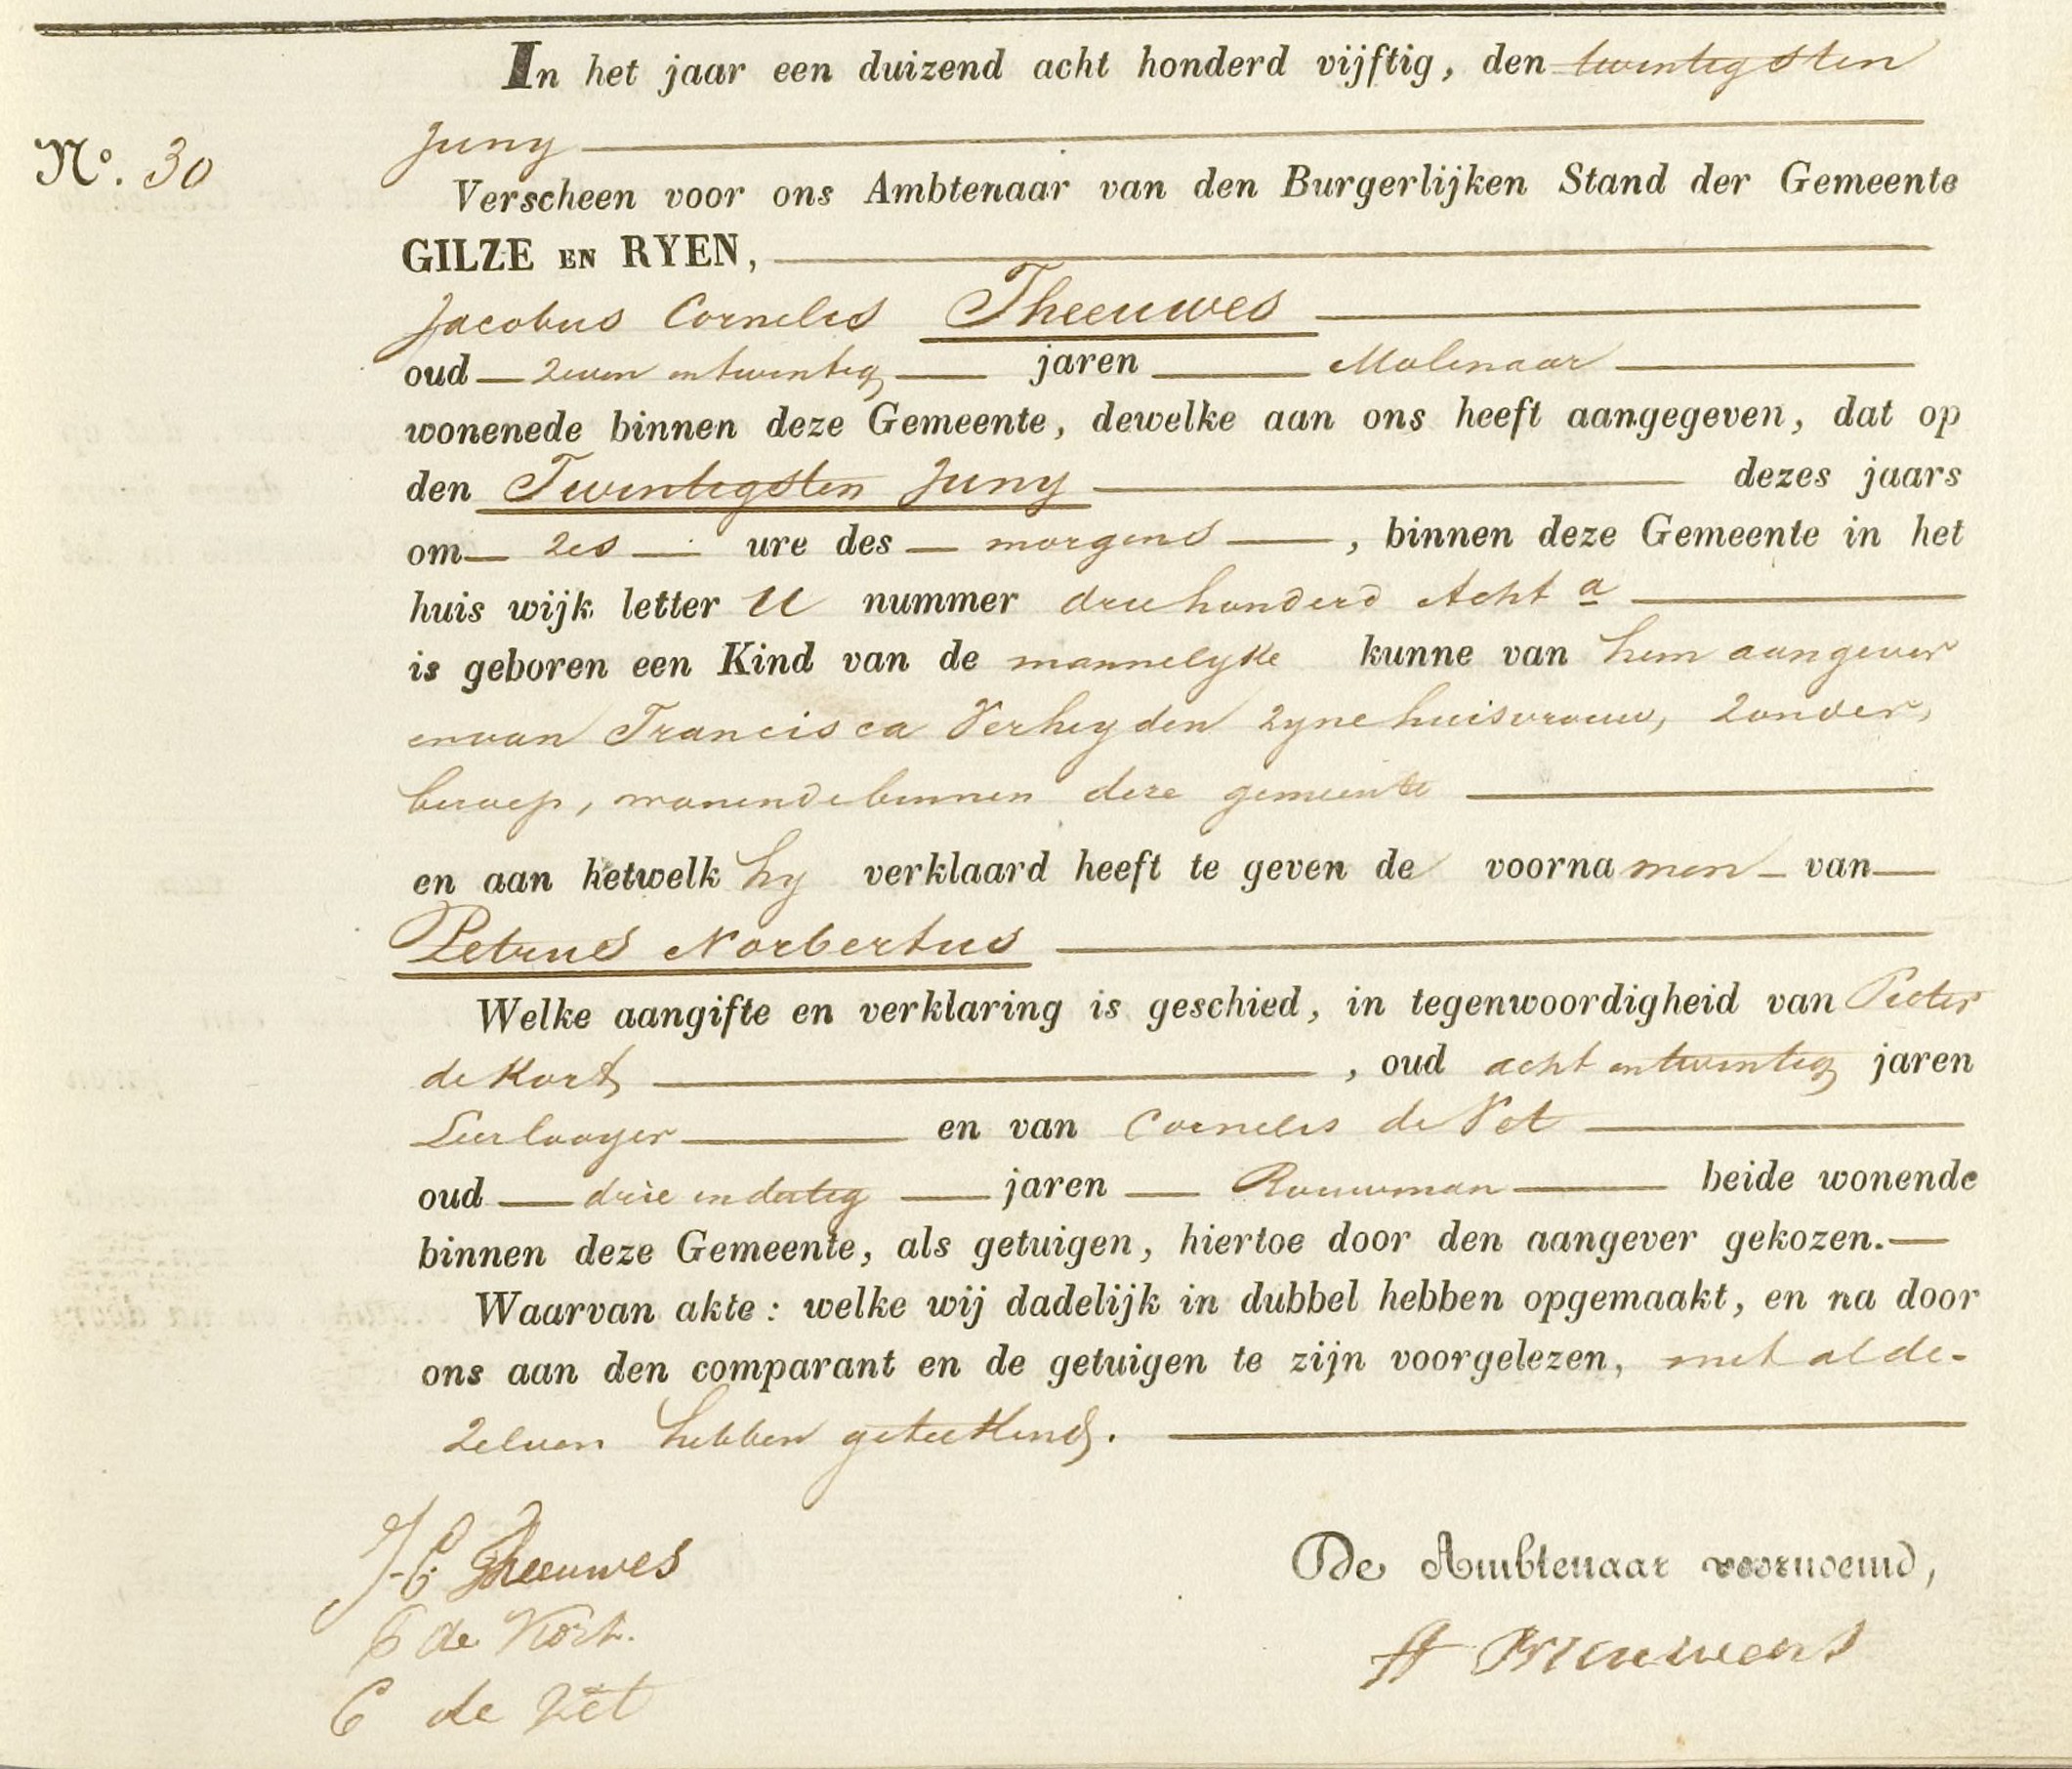 In het jaar een duizend acht honderd vijftig, den twintigsten
Juny
No. 30
Verscheen voor ons Ambtenaar van den Burgerlijken Stand der Gemeente
GILZE EN RYEN,
Jacobus Cornelis Theeuwes
oud zeven en twintig jaren Molenaar
wonenede binnen deze Gemeente, dewelke aan ons heeft aangegeven, dat op
den Twintigsten Juny dezes jaars
om zes ure des morgens, binnen deze Gemeente in het
huis wijk letter U nummer driehonderd Acht a
is geboren een Kind van de mannelyke kunne van hem aangever
en van Francisca Verheyden zyne huisvrouw, zonder
beroep, wonende binnen deze gemeente
en aan hetwelk hy verklaard heeft te geven de voornamen van
Petrus Norbertus
Welke aangifte en verklaring is geschied, in tegenwoordigheid van Pieter
de Kort, oud acht en twintig jaren
Leerlooyer en van Cornelis de Vet
oud drie en dertig jaren Bouwman beide wonende
binnen deze Gemeente, als getuigen, hiertoe door den aangever gekozen.
Waarvan akte: welke wij dadelijk in dubbel hebben opgemaakt, en na door
ons aan den comparant en de getuigen te zijn voorgelezen, met alde-
zelven hebben geteekend.
J. C. Theeuwes
De Ambtenaar voornoemd,
P de Kort.
C de Vet